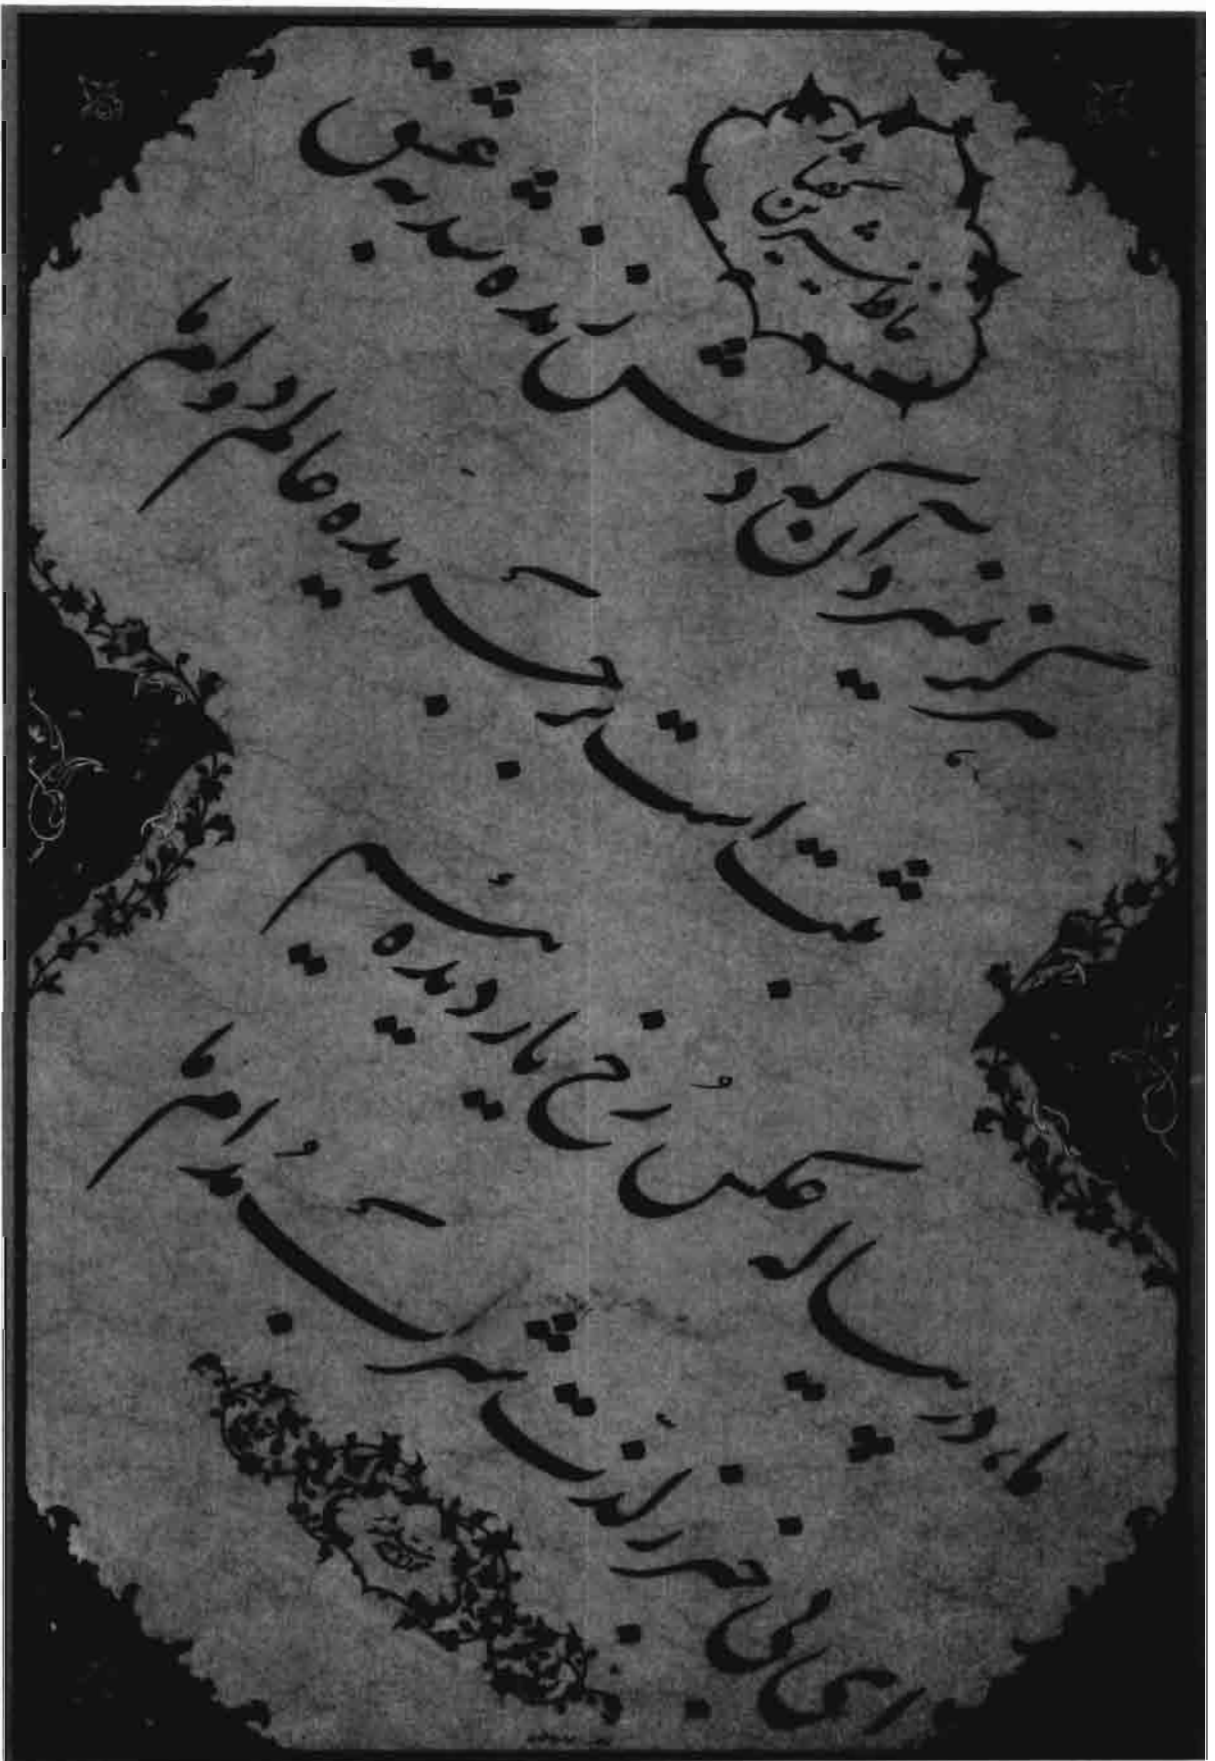 حافظ شیرین
هرگز نمیرد آن که دلش زنده شد به عشق
ثبت است بر جریده عالم دوام ما
ما در پیاله عکس رُخ یار دیده‌ایم
ای بی خبر ز لذت شرب مُدام ما